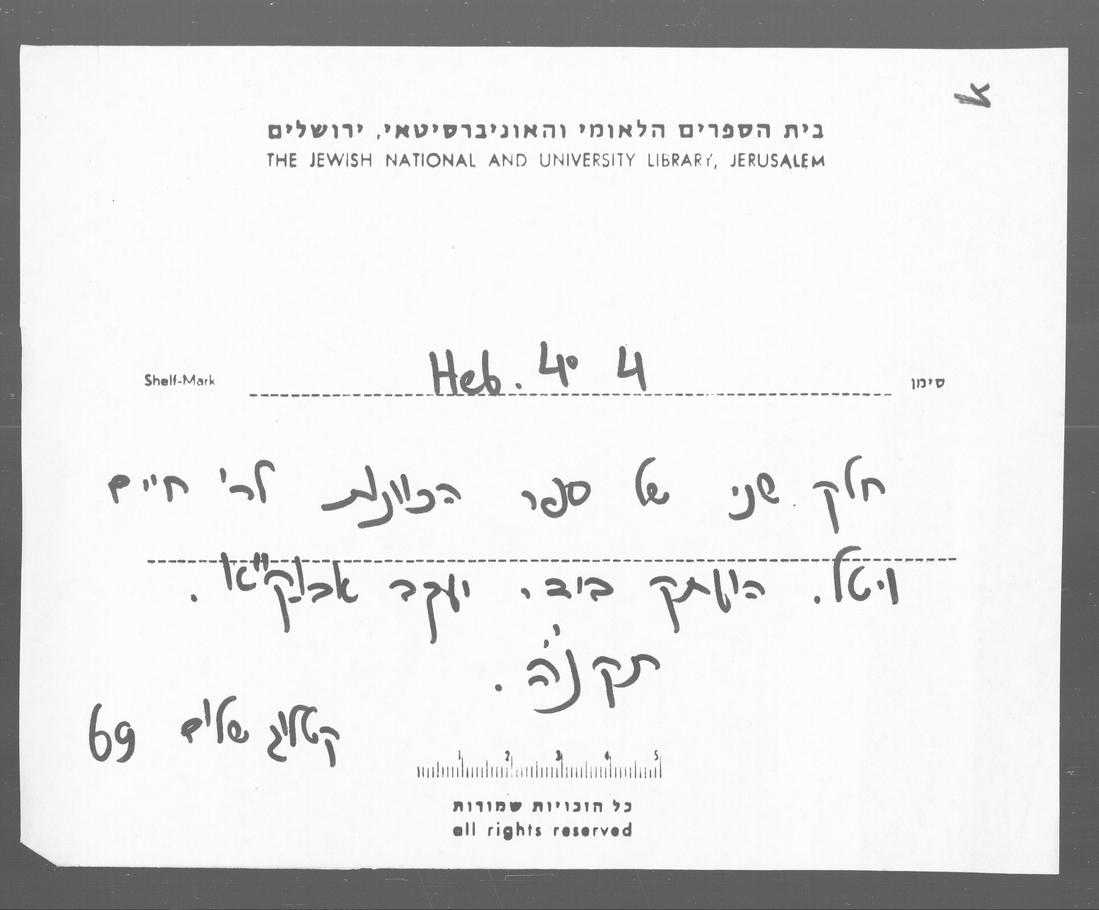 א
בית הספרים הלאומי והאוניברסיטאי, ירושלים
THE JEWISH NATIONAL AND UNIVERSITY LIBRARY, JERUSALEM
Shelf-Mark Heb. 4° 4 סימן
חלק שני של ספר הכוונות לר' חיים
ויטל. הועתק ביד. יעקב
תקנ"ה.
קטלוג שלום 69
1 2 3 4 5
כל הזכויות שמורות
all rights reserved